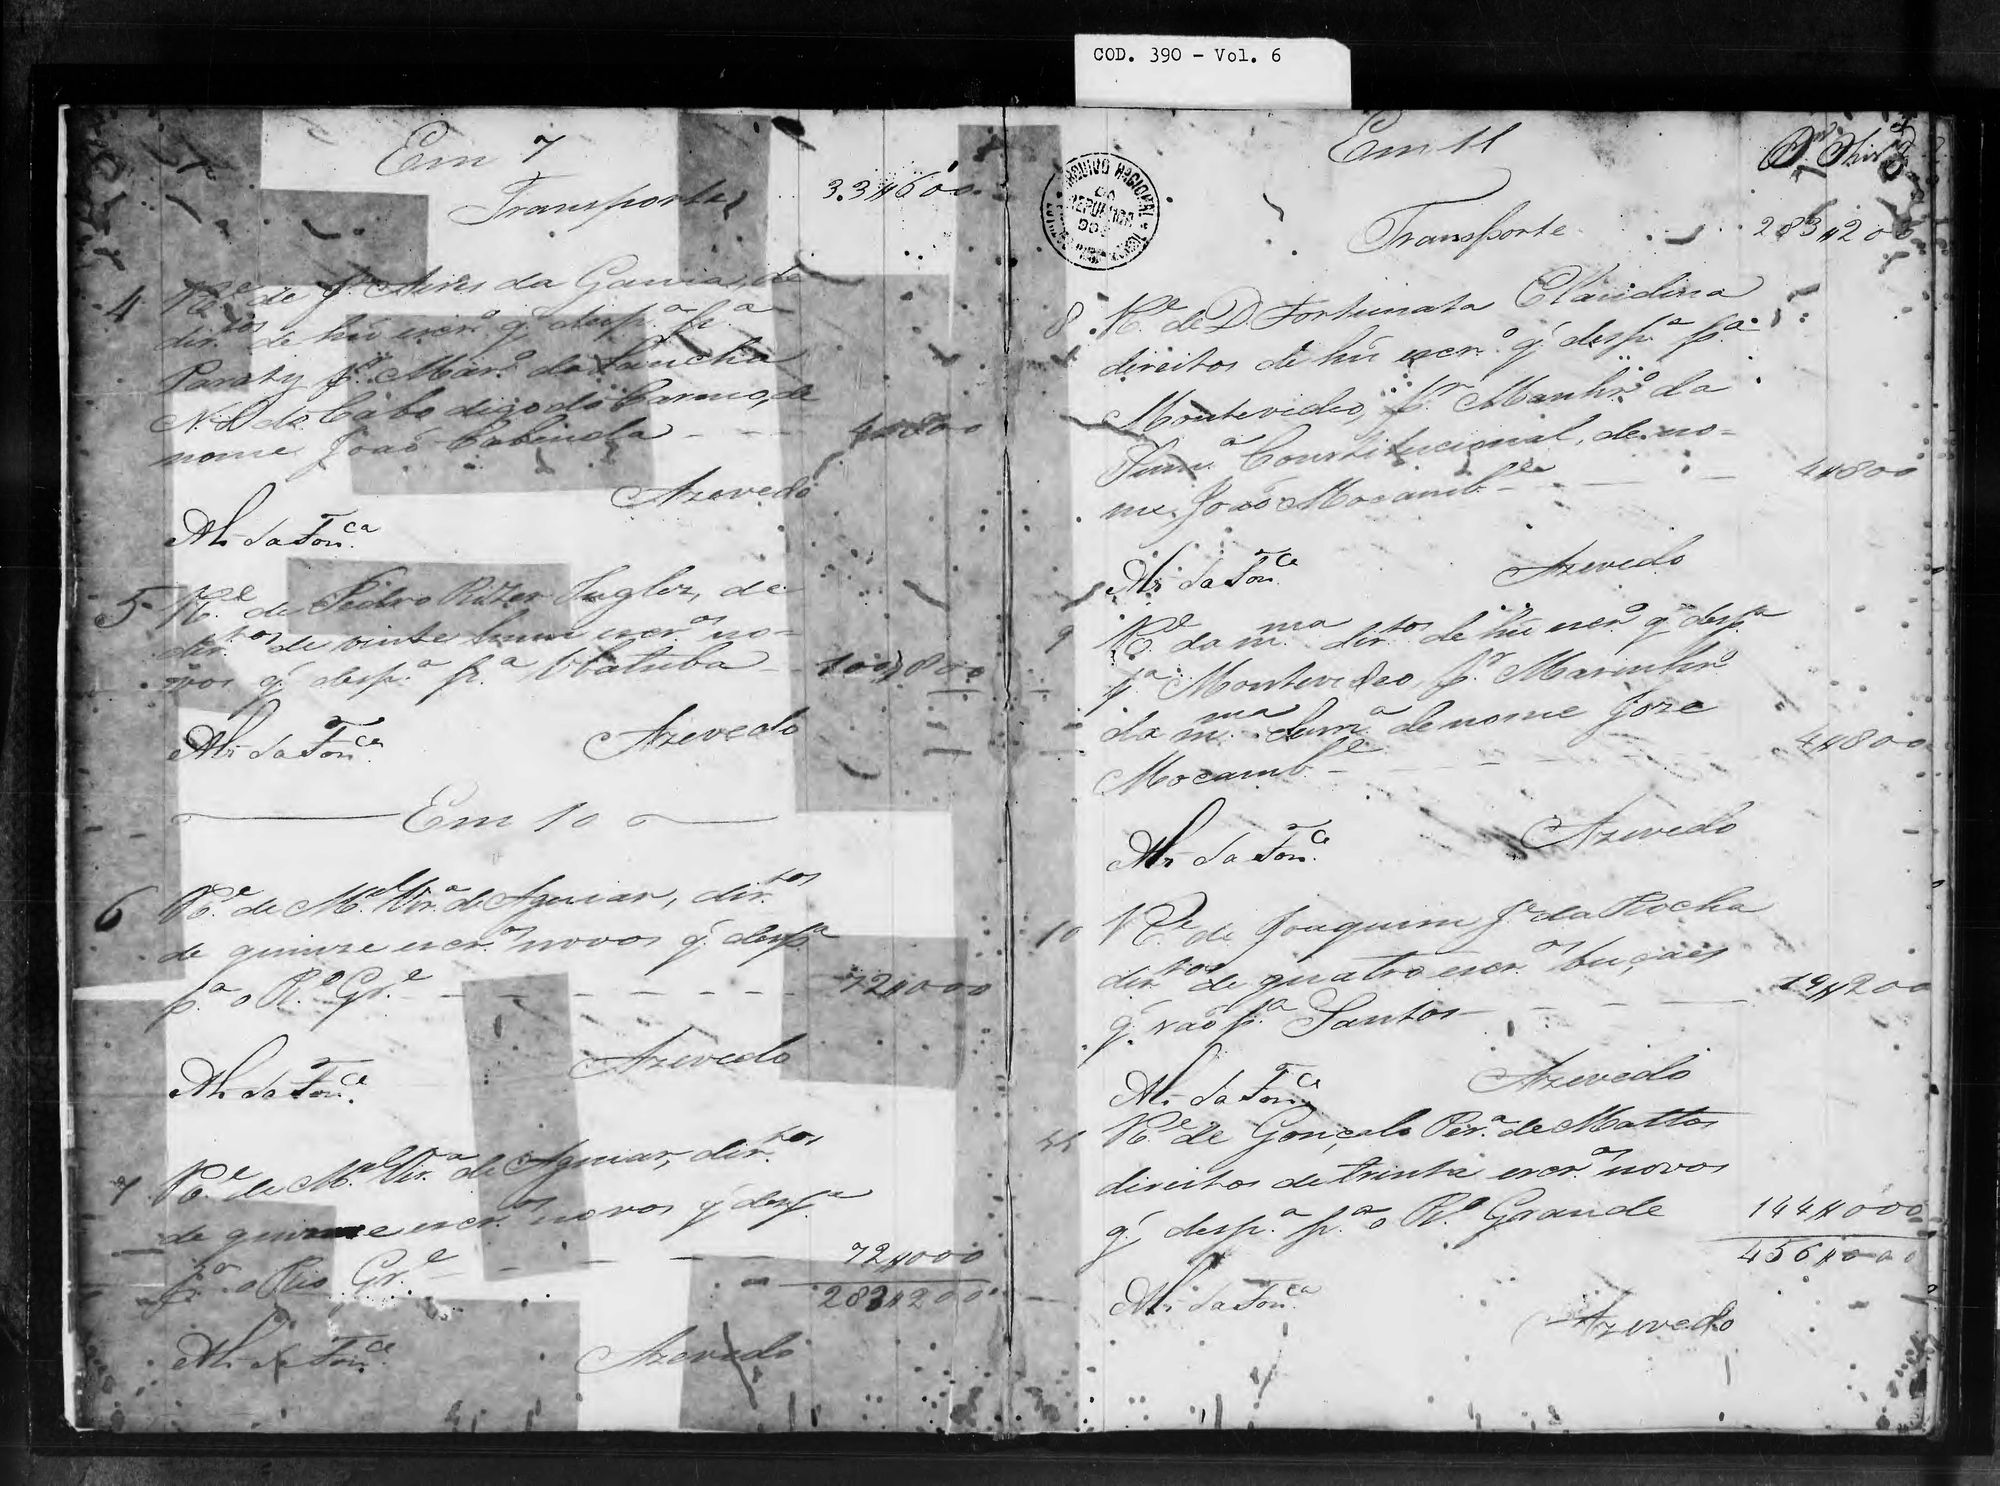 COD. 390 - Vol. 6
Em 7
Transporte 33#600
4 R.e de J.e Aires da Gama, de
dir.tos de hũ escr.o q' desp.a p.a
Paraty p.r Mar.o da Lancha
N. S. do Cabo digo do Carmo, de
nome João Cabinda - - - 4#800
Az da Fon.ca Azevedo
5 R.e de Pedro Rizer Inglez, de
dir.tos de vinte hum escr.os no=
vos q' desp.a p.a Ubatuba 100#800
Az da Fon.ca Azevedo
Em 10
6 R.e de M.el Vir.a de Aguiar, dir.tos
de quinze escr.os novos q' desp.a
p.a o R.o Gr.e - - - - - - 72#000
Az da Fon.ca Azevedo
7 R.e de M.el Vir.a de Aguiar, dir.tos
de quinze escr.os novos q' desp.a
p.a o Rio Gr.e - - - - - 72#000
283#200
Az da Fon.ca Azevedo
Em 11
ARQUIVO NACIONAL
Transporte 283#200
8 R.e de D. Fortunata Claudina
direitos de hũ escr.o q' desp.a p.a
Montevideo, p.r Manhr.o da
Sum.a Constitucional, de no-
me João Mocamb.e - - - - 4#800
Az da Fon.ca Azevedo
9 R.e da m.ma dir.tos de hũ escr.o q' desp.a
p.a Montevideo p.r Marinhr.o
da m.ma Sum.a de nome Joze
Mocamb.e - - - - - - 4#800
Az da Fon.ca Azevedo
10 R.e de Joaquim J.e da Rocha
dir.tos de quatro escr.os buçaes
q' vão p.a Santos - - - - - 19#200
Az da Fon.ca Azevedo
11 R.e de Gonçalo Per.a de Mattos
direitos de trinta escr.os novos
q' desp.a p.a o R.o Grande 144#000
456#000
Az da Fon.ca
Azevedo